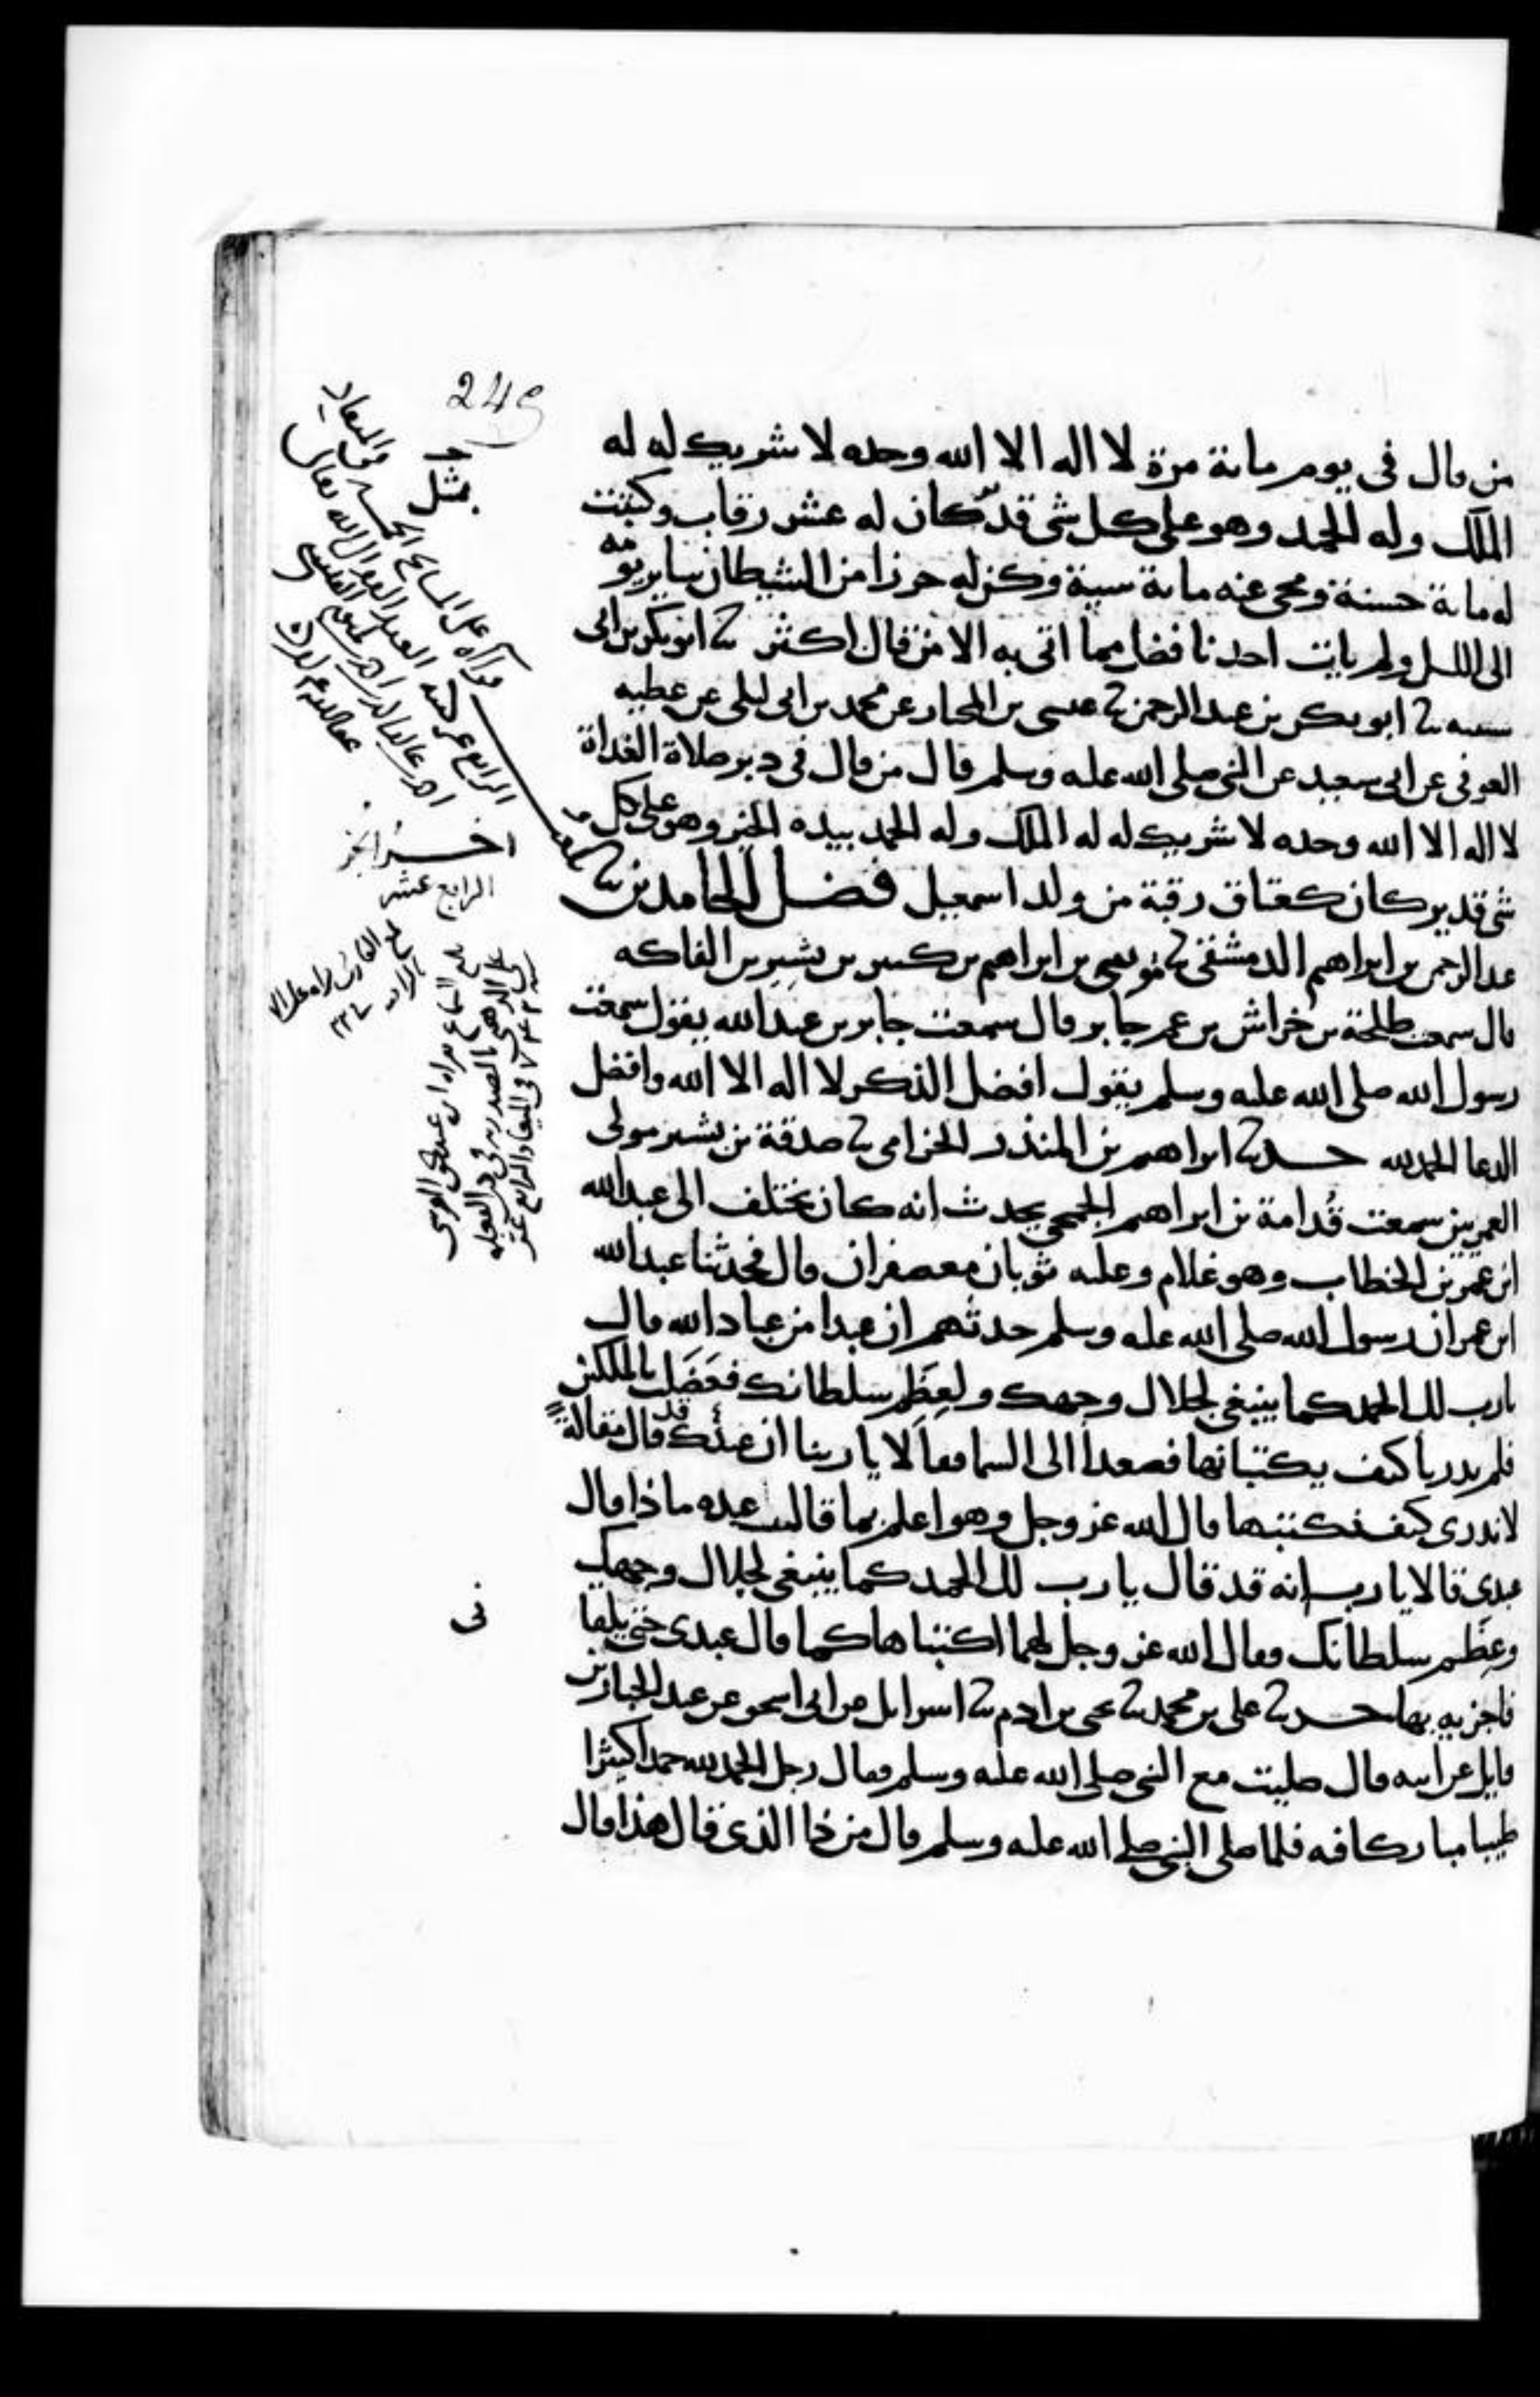 249
من قال في يوم مائة مرة لا اله الا الله وحده لا شريك له له
الملك وله الحمد وهو على كل شي قدير كان له عشر رقاب وكتبت
له مائة حسنة ومحي عنه مائة سية وكن له حرزا من الشيطان ساير يومه
الى الليل ولم يات احدنا فضل مما اتى به الا من قال اكثر ثنا ابو بكر بن ابي
شيبه ثنا ابو بكر بن عبد الرحمن ثنا عيسى بن المختار عن محمد بن ابي ليلى عن عطيه
العوفي عن ابي سعيد عن النبي صلى الله عليه وسلم قال من قال في دبر صلاة الغداة
لا اله الا الله وحده لا شريك له له الملك وله الحمد بيده الخير وهو على كل
شي قدير كان كعتاق رقبة من ولد اسمعيل فضل الحامدين ثنا
عبد الرحمن بن ابراهيم الدمشقي ثنا موسى بن ابراهيم بن كثير بن بشير بن الفاكه
قال سمعت طلحة بن خراش بن عم جابر قال سمعت جابر بن عبد الله يقول سمعت
رسول الله صلى الله عليه وسلم يقول افضل الذكر لا اله الا الله وافضل
الدعا الحمد لله حدثنا ابراهيم بن المنذر الحزامي ثنا صدقة بن بشير مولى
العمريين سمعت قُدامة بن ابراهيم الجمحي يحدث انه كان يختلف الى عبد الله
ابن عمر بن الخطاب وهو غلام وعليه ثوبان معصفران قال فحدثنا عبد الله
ابن عمر ان رسول الله صلى الله عليه وسلم حدثهم ان عبدا من عباد الله قال
يارب لك الحمد كما ينبغي لجلال وجهك ولعِظَم سلطانك فعَضَلت بالملكين
فلم يدريا كيف يكتبانها فصعدا الى السما فقالا يا ربنا ان عبدك قد قال مقالةً
لا ندري كيف نكتبها قال الله عز وجل وهو اعلم بما قال عبده ماذا قال
عبدي قالا يا رب انه قد قال يا رب لك الحمد كما ينبغي لجلال وجهك
وعِظَم سلطانك فقال الله عز وجل لهما اكتباها كما قال عبدي حتى يلقا
فاجزيه بها حدثنا علي بن محمد ثنا يحيى بن ادم ثنا اسرائيل عن ابي اسحق عن عبد الجبار بن
وايل عن ابيه قال صليت مع النبي صلى الله عليه وسلم فقال رجل الحمد لله حمدا كثيرا
طيبا مباركا فيه فلما صلى النبي صلى الله عليه وسلم قال من ذا الذي قال هذا قال
اخر الجز
الرابع عشر
ني